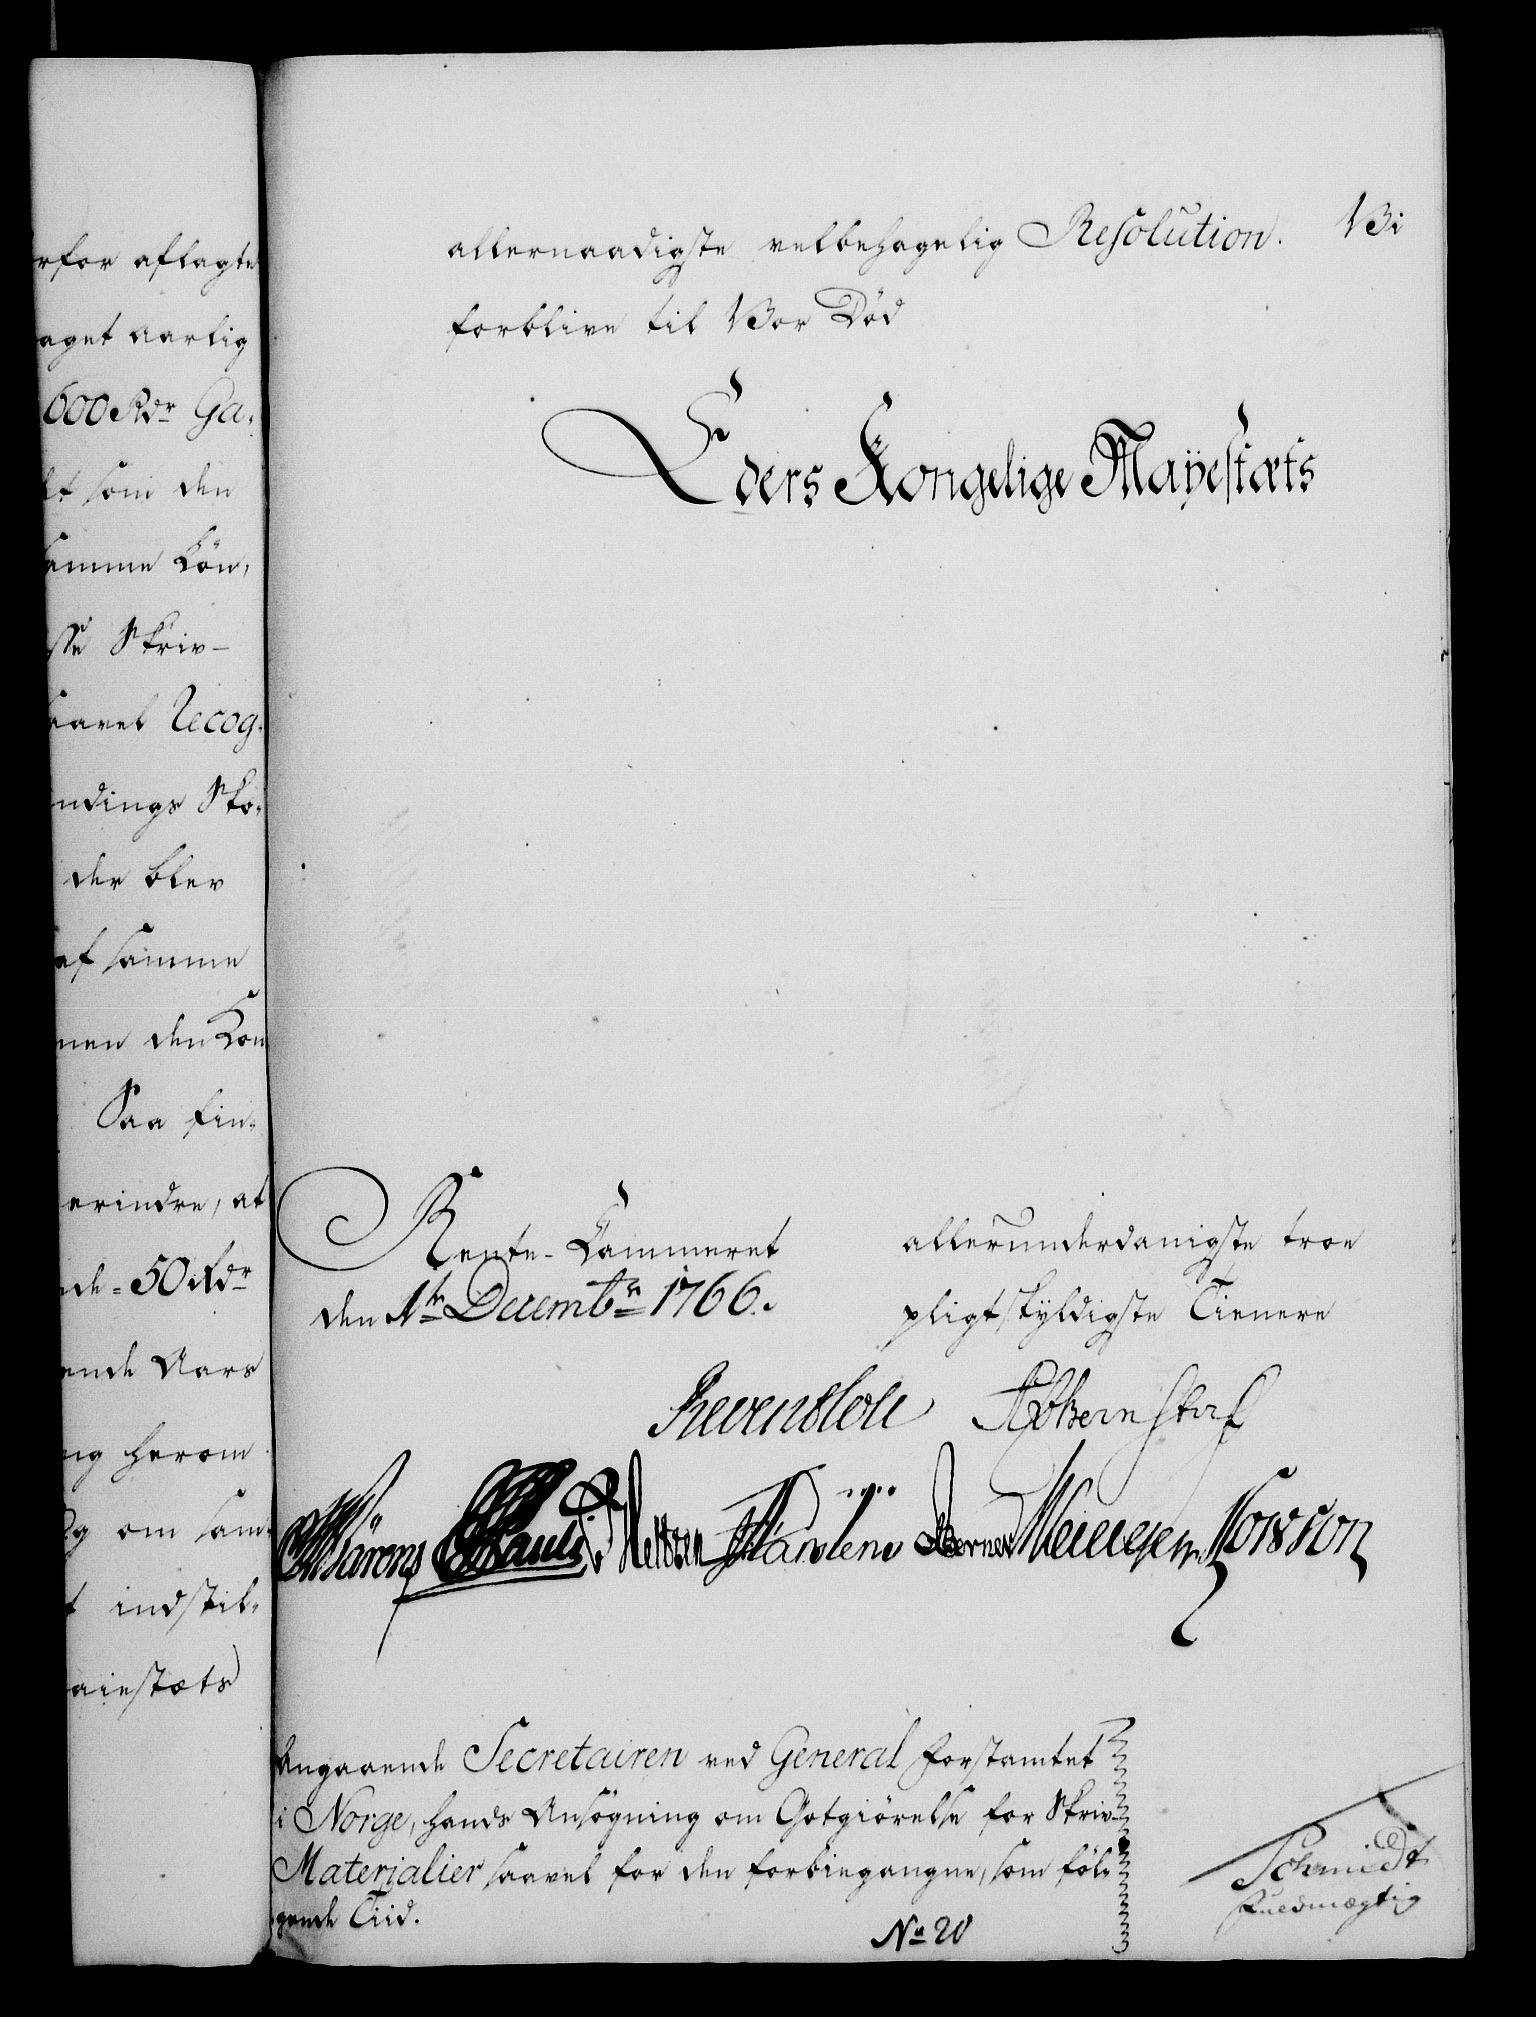 rfor aflagte
aget aarlig
600 Rdr Ga-
som den
amme Lön,
sse Skriv-
saavel Recog-
ndings Sko-
der blev
af samme
men den Kon
Saa fin-
erindre, at
nde - 50 Rdr
ende Aars
ng herom
og om sam-
indstil-
aiestæts
allernaadigste velbehagelig Resolution. Vi
forblive til Vor Död
Eders Kongelige Mayestæts
Rente-Cammeret
den 1ste Decembr 1766.
allerunderdanigste troe
pligtskyldigste Tienere
Reventlow Bernstorf
Pauli
Angaaende Secretairen ved General Forstamtet
i Norge, hands Ansögning om Gotgiörelse for Skriv-
Materialier saavel for den forbiegangne, som föl-
gende Tiid.
No 20
Schmidt
Fuldmægtig